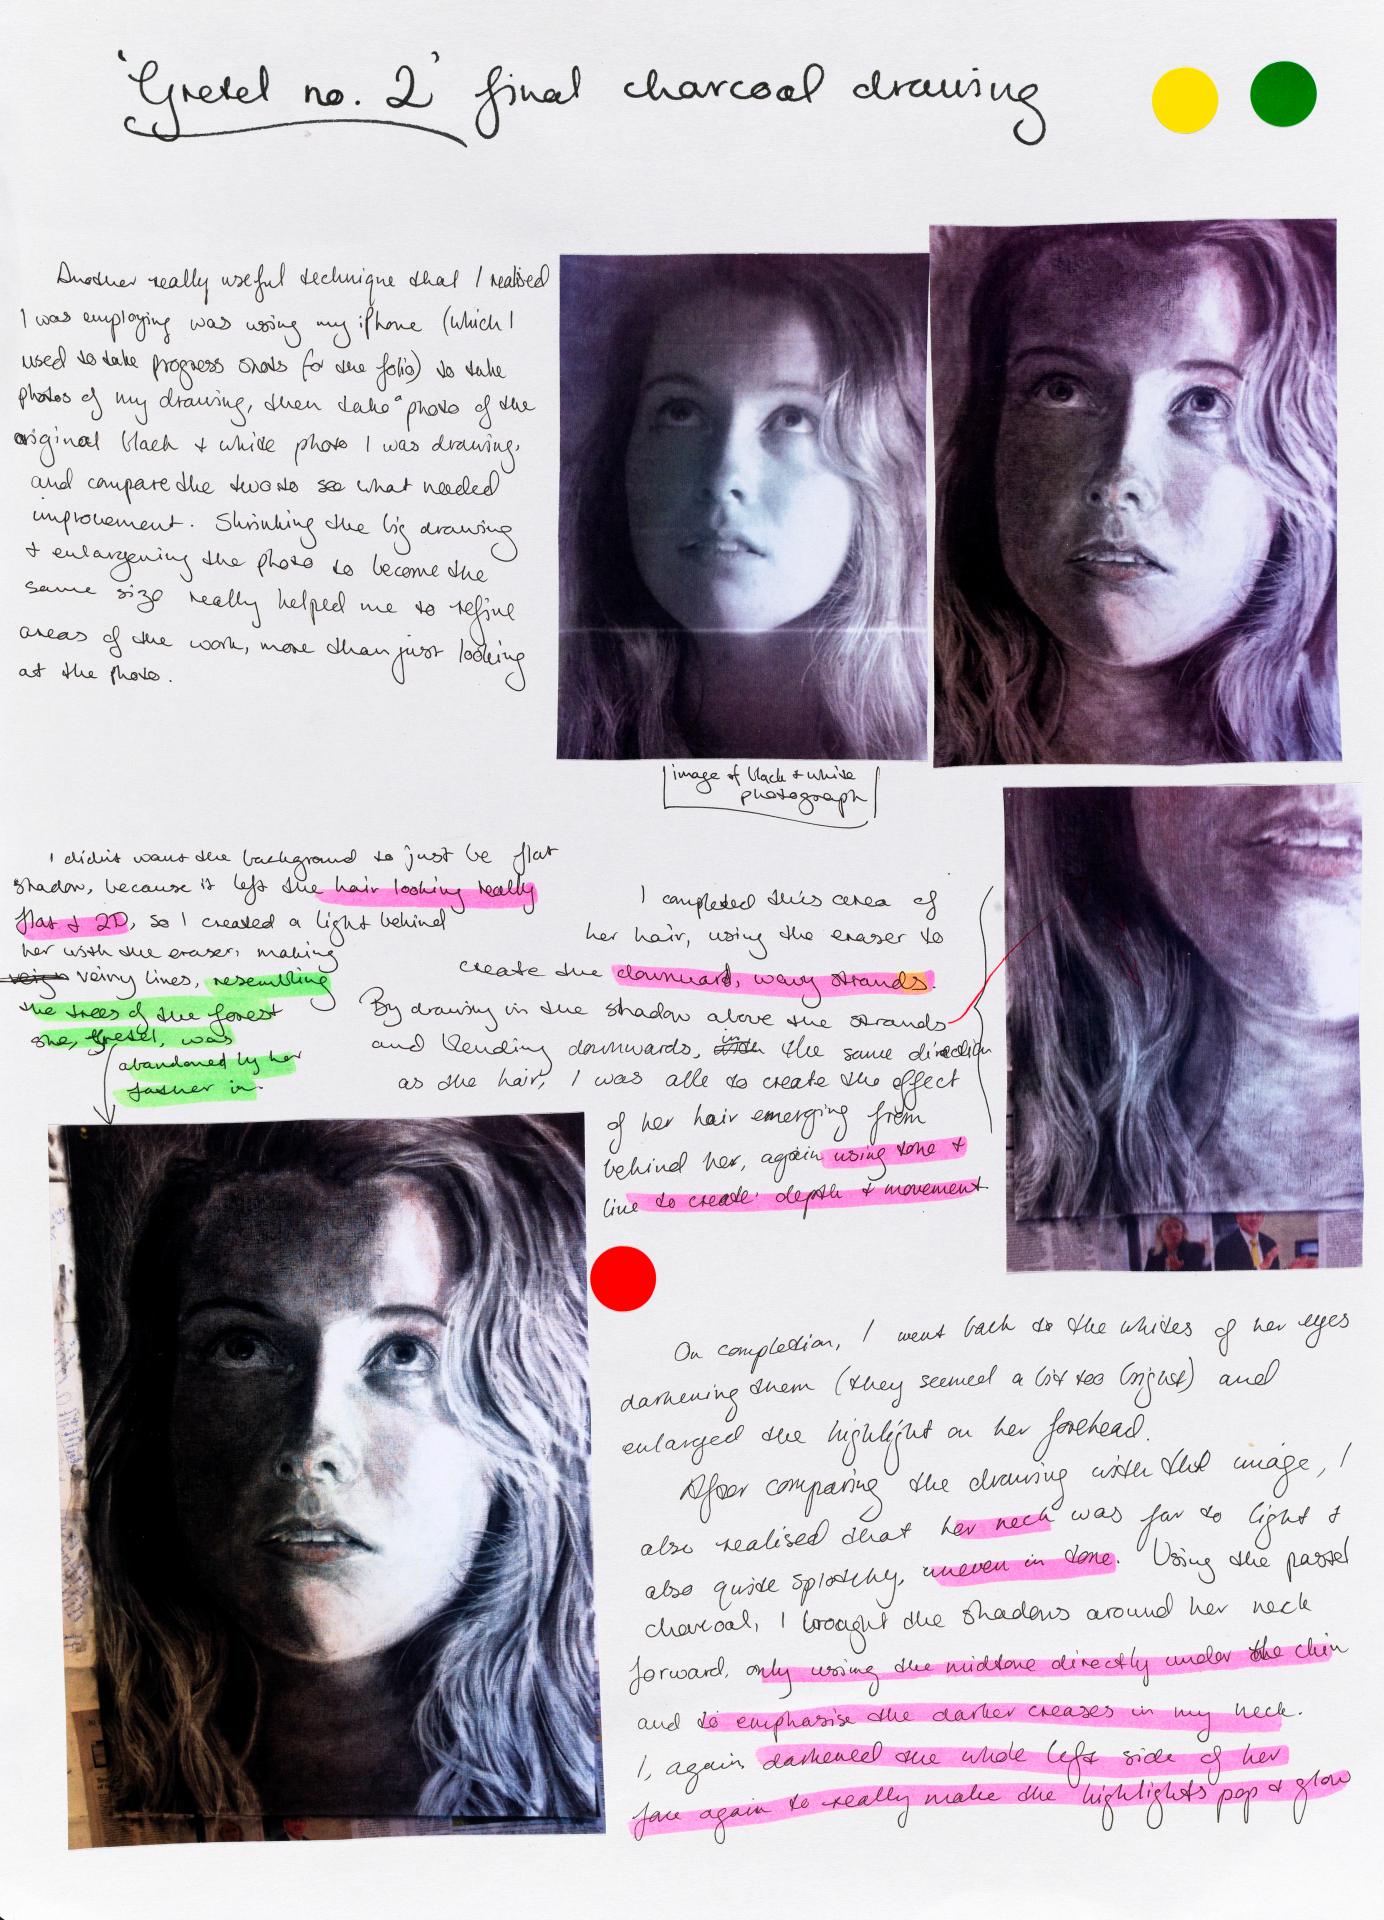 'Gretel no. 2' final charcoal drawing
Another really useful technique that I realised
I was employing was using my iPhone (which I
used to take progress shots for the folio) to take
photos of my drawing, then take a photo of the
original black & white photo I was drawing,
and compare the two to see what needed
improvement. Shrinking the big drawing
& enlargening the photo to become the
same size really helped me to refine
areas of the work, more than just looking
at the photo.
image of black & white
photograph
I didn't want the background to just be flat
shadow, because it left the hair looking really
flat & 2D, so I created a light behind
her with the eraser, making
veiny lines, resembling
the trees of the forest
she, Gretel, was
abandoned by her
father in.
I completed this area of
her hair, using the eraser to
create the downward, wavy strands.
By drawing in the shadow above the strands
and blending downwards, in the same direction
as the hair, I was able to create the effect
of her hair emerging from
behind her, again using tone &
line to create depth & movement
On completion, I went back to the whites of her eyes
darkening them (they seemed a bit too bright) and
enlarged the highlight on her forehead.
After comparing the drawing with that image, I
also realised that her neck was far to light &
also quite splotchy, uneven in tone. Using the pastel
charcoal, I brought the shadows around her neck
forward, only using the midtone directly under the chin
and to emphasise the darker creases in my neck.
I, again darkened the whole left side of her
face again to really make the highlights pop & glow